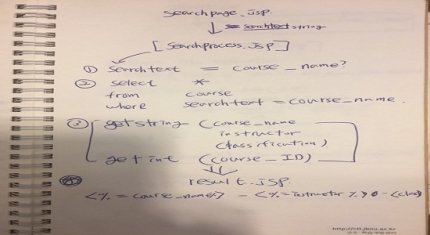 searchpage.jsp
↓ searchtext string
[ searchprocess.jsp ]
① searchtext = course_name?
② select *
from course
where searchtext = course_name.
③ getstring (course_name
instructor
classification)
getint (course_ID)
result.jsp
④ <%= course_name%> - <%= instructor %>